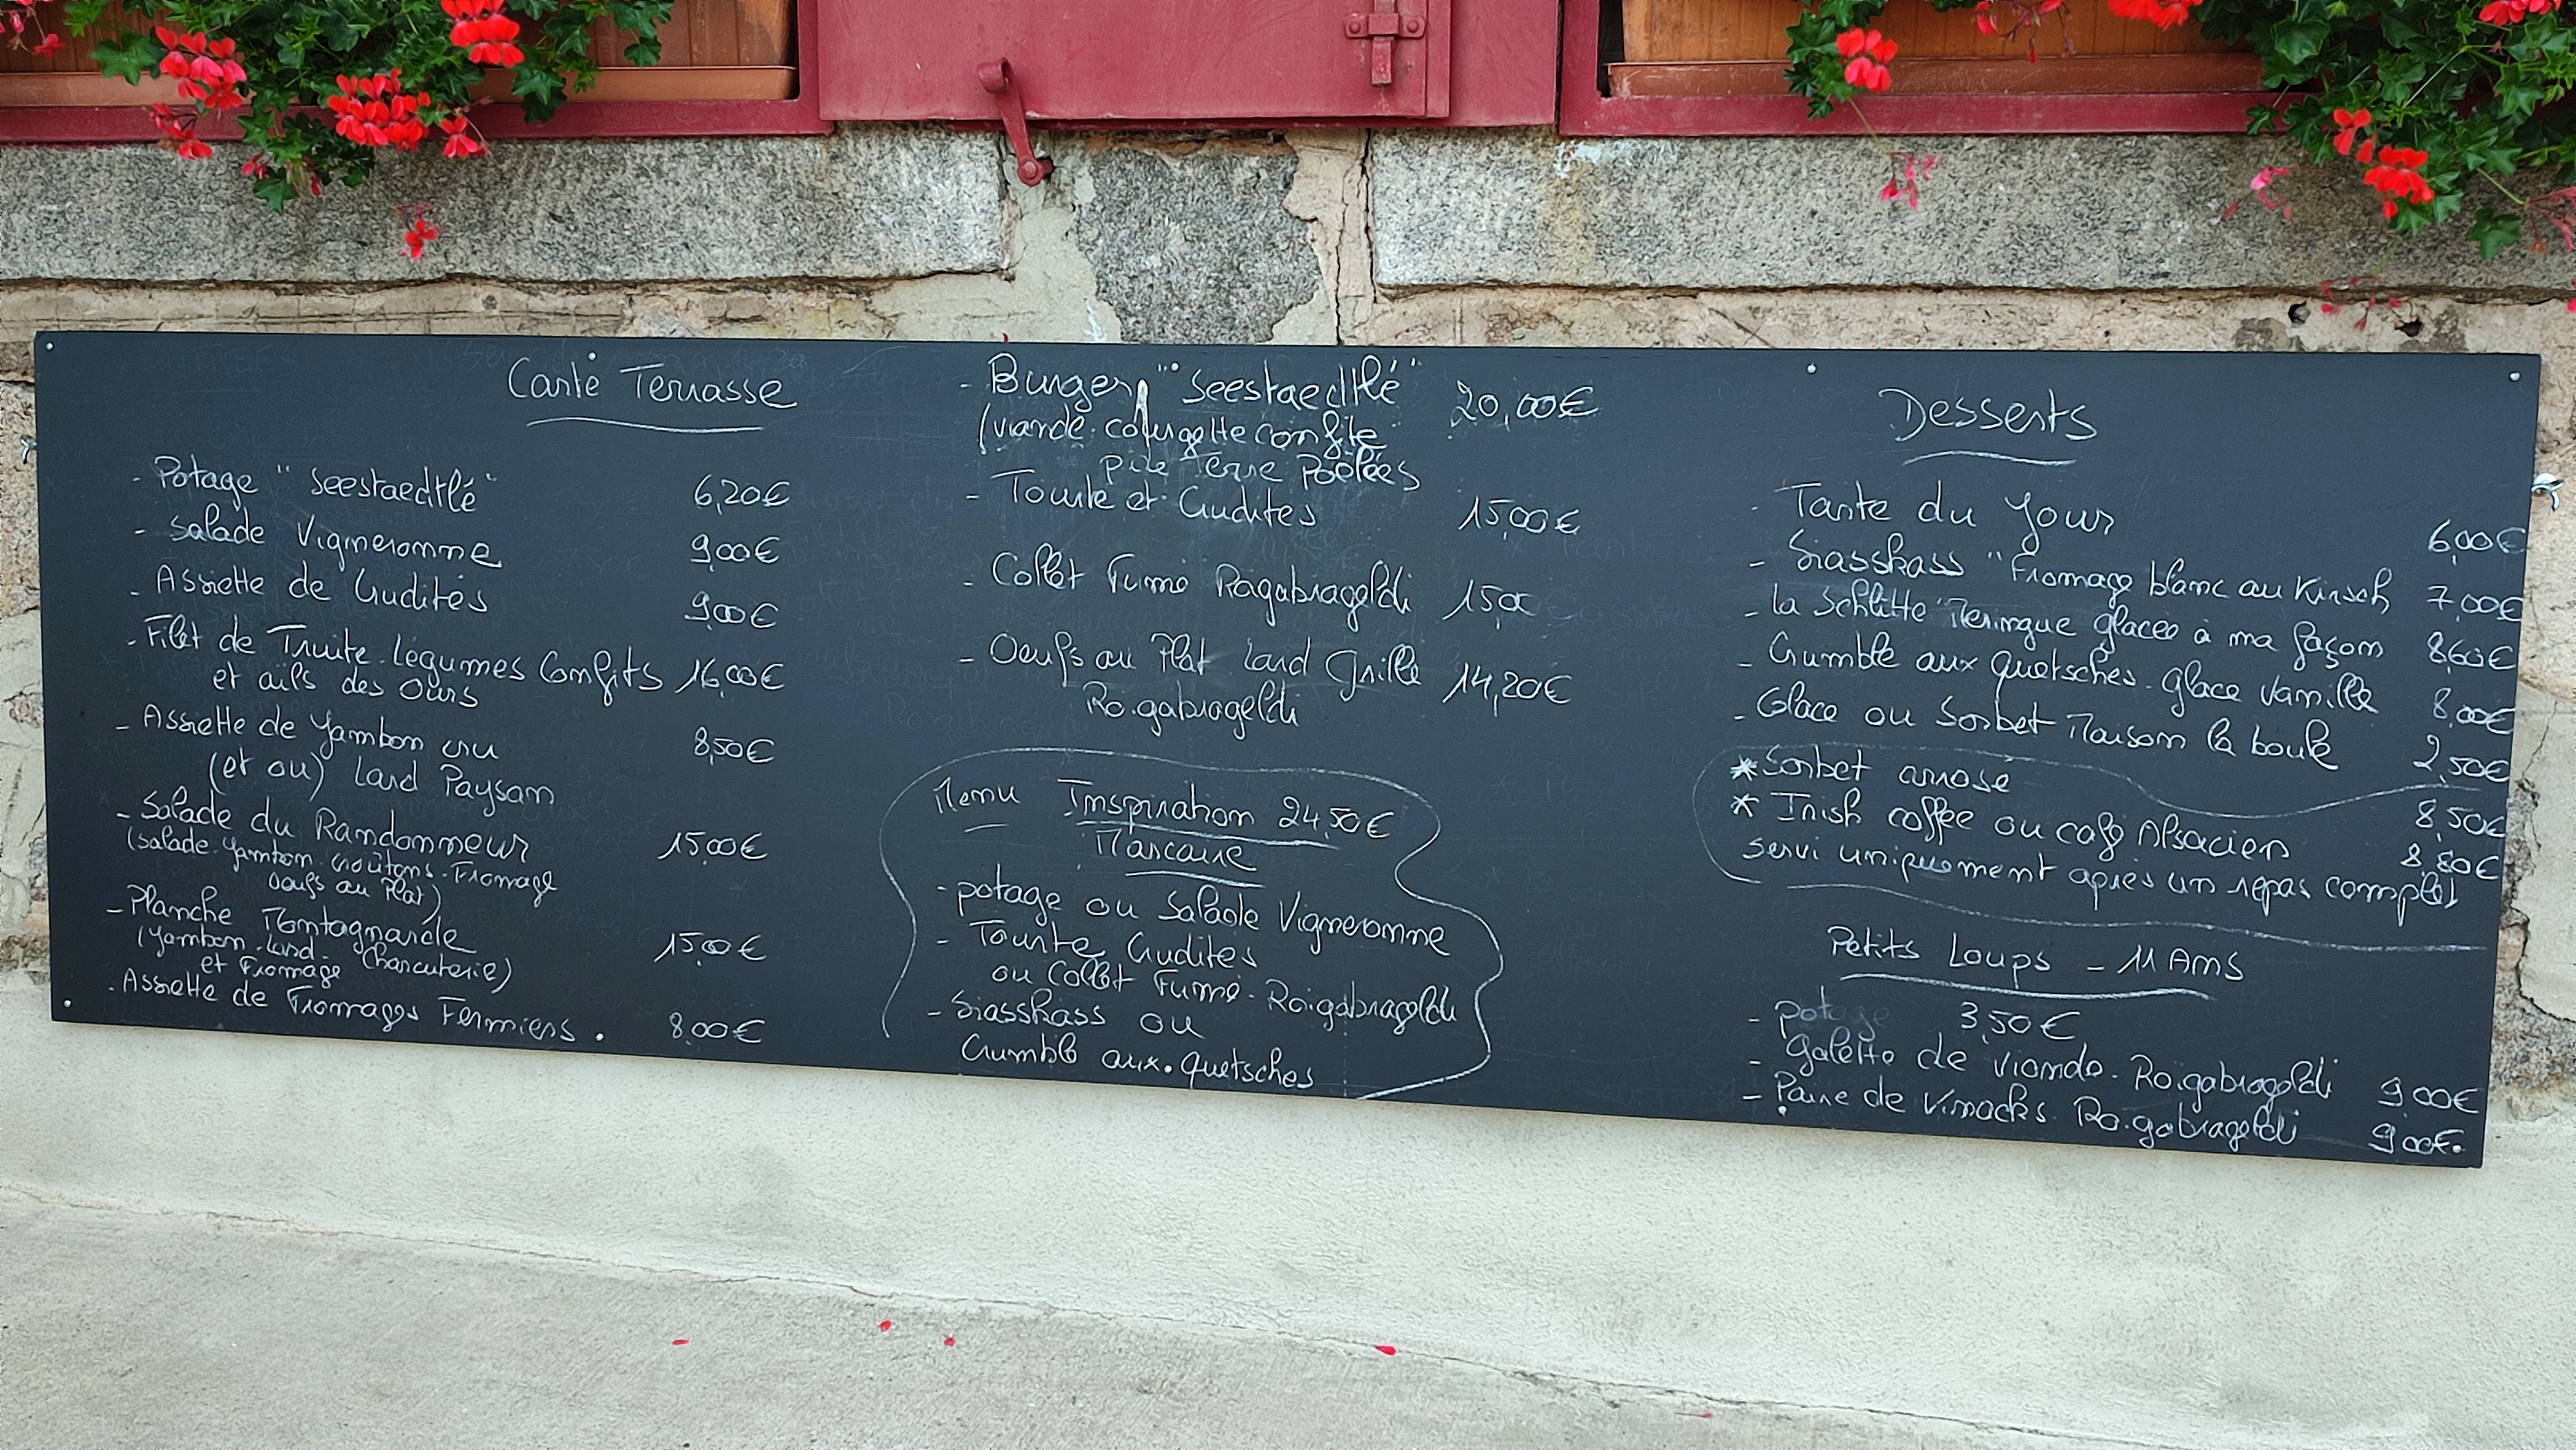 Carte Terrasse
- Potage "Seestaedtlé" 6,20€
- Salade Vigneronne 9,00€
- Assiette de Crudités 9,00€
- Filet de Truite. Légumes Confits 16,00€
et ails des Ours
- Assiette de Jambon cru 8,50€
(et ou) Lard Paysan
- Salade du Randonneur 15,00€
(salade. Jambon. croûtons. Fromage
Oeufs au Plat)
- Planche Montagnarde 15,00€
(Jambon. Lard. Charcuterie)
et Fromage
- Assiette de Fromages Fermiers. 8,00€
- Burger "Seestaedtlé" 20,00€
(viande. courgette confite
Terre Poêlées
- Tourte et Crudités 15,00€
- Collet Fumé Ragabrageldi 15,00
- Oeufs au Plat Lard Grillé 14,20€
Roigabrageldi
Menu Inspiration 24,50€
Marcaire
- potage ou Salade Vigneronne
- Tourte Crudités
ou Collet Fumé. Roigabrageldi
- Siasskass ou
Crumble aux quetsches
Desserts
- Tarte du Jour 6,00€
- Siasskass "Fromage blanc au Kirsch 7,00€
- la Schlitte "Meringue glacée à ma façon 8,60€
- Crumble aux quetsches. glace Vanille 8,00€
- Glace ou Sorbet Maison la boule 2,50€
* Sorbet arrosé 8,50€
* Irish coffee ou café Alsacien 8,80€
servi uniquement après un repas complet
Petits Loups - 11 Ans
- potage 3,50€
- galette de viande. Roigabrageldi 9,00€
- Paire de Vinacks. Roigabrageldi 9,00€